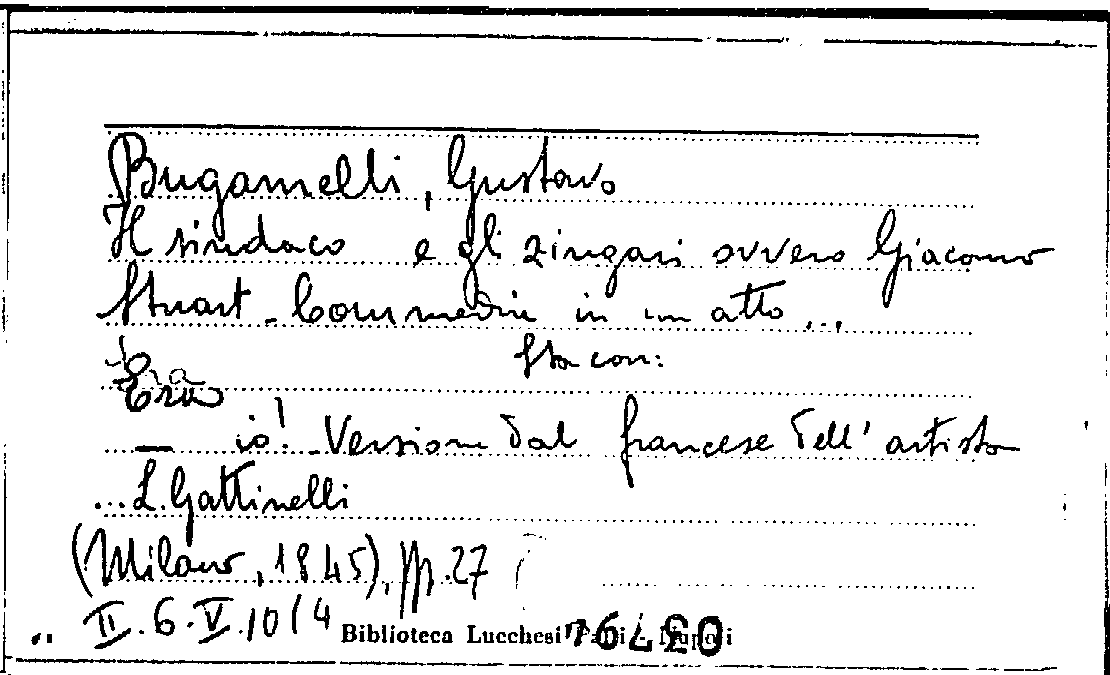 Bugamelli, Gustavo
Il sindaco e gli zingari ovvero Giacomo
Stuart - Commedia in un atto ...
Sta con:
Era
— io! - Versione dal francese dell' artista
... L. Gattinelli
(Milano, 1845), pp. 27
II. 6. V. 10 (4
Biblioteca Lucchesi Palli - Napoli